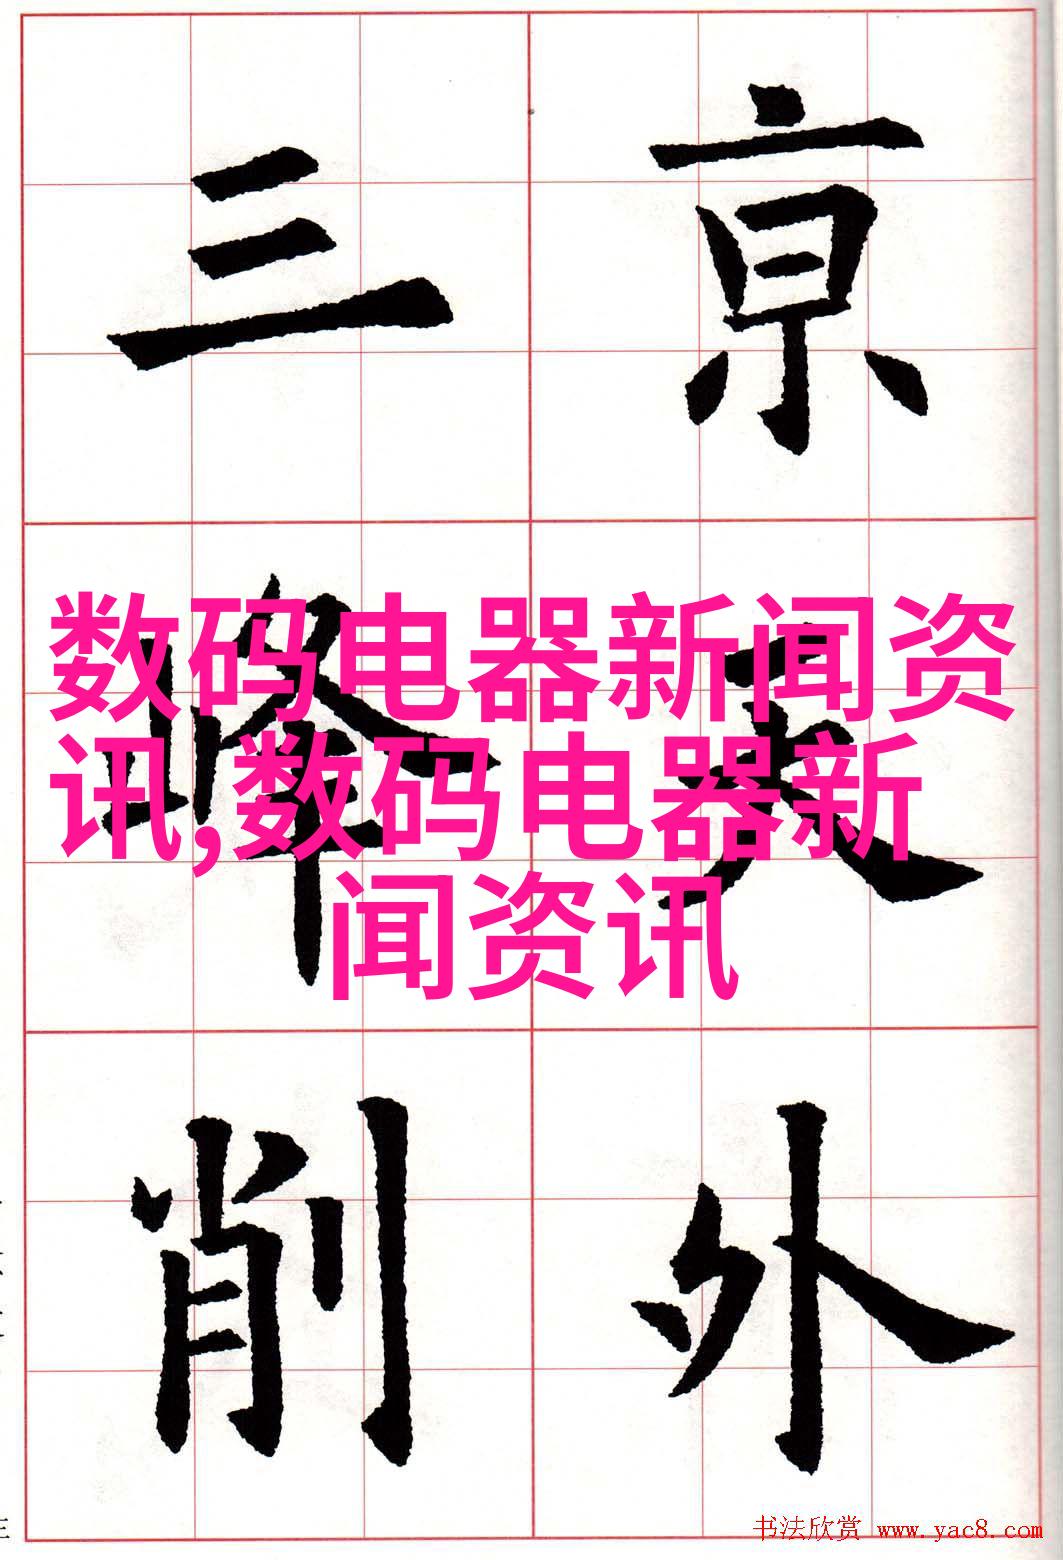 亰天外
三峰削
数码电器新闻资
讯,数码电器新
闻资讯
书法欣赏 www.yac8.com